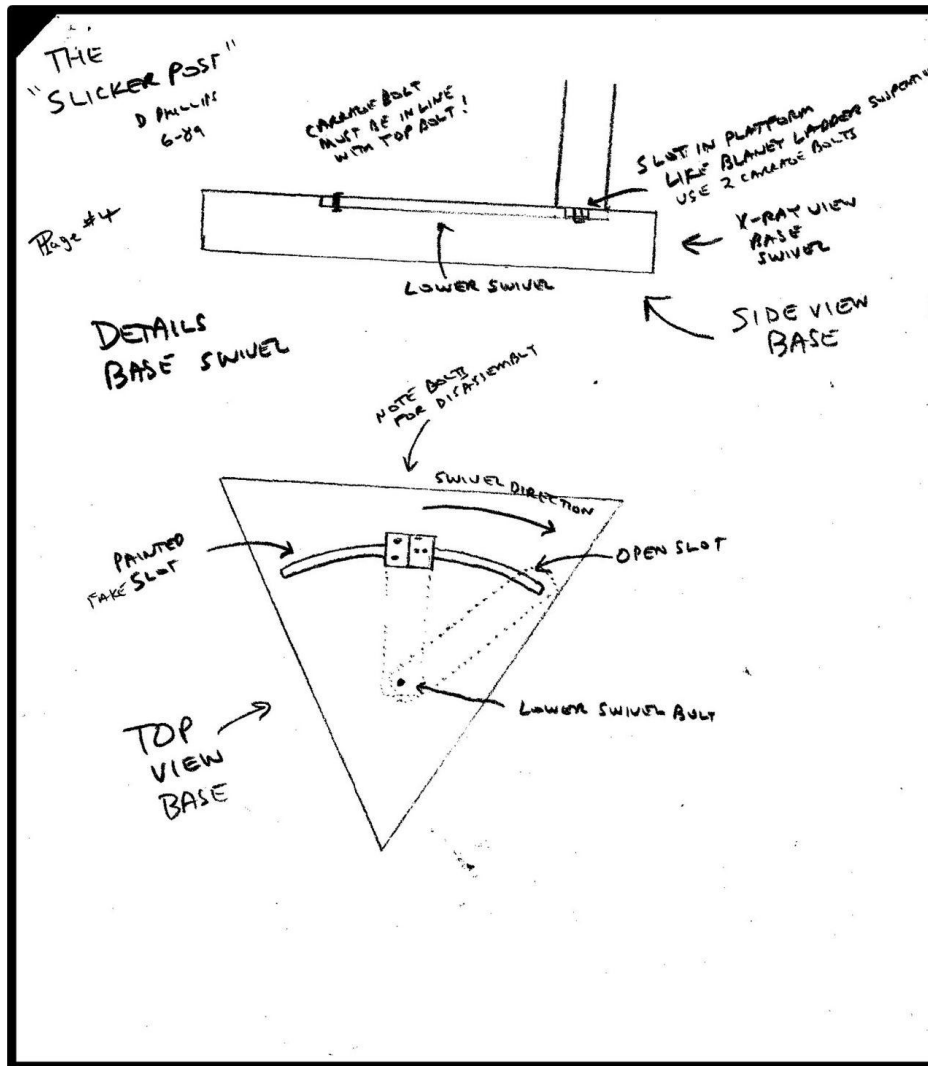 THE
"SLICKER POST"
D PHILLIPS
6-89
Page #4
CARRAGE BOLT
MUST BE IN LINE
WITH TOP BOLT!
SLOT IN PLATFORM
LIKE BLANEY LADDER SUSPENTION
USE 2 CARRAGE BOLTS
X-RAY VIEW
BASE
SWIVEL
LOWER SWIVEL
SIDE VIEW
BASE
DETAILS
BASE SWIVEL
NOTE BOLTS
FOR DISASSEMBLY
SWIVEL DIRECTION
PAINTED
FAKE SLOT
OPEN SLOT
LOWER SWIVEL BOLT
TOP
VIEW
BASE